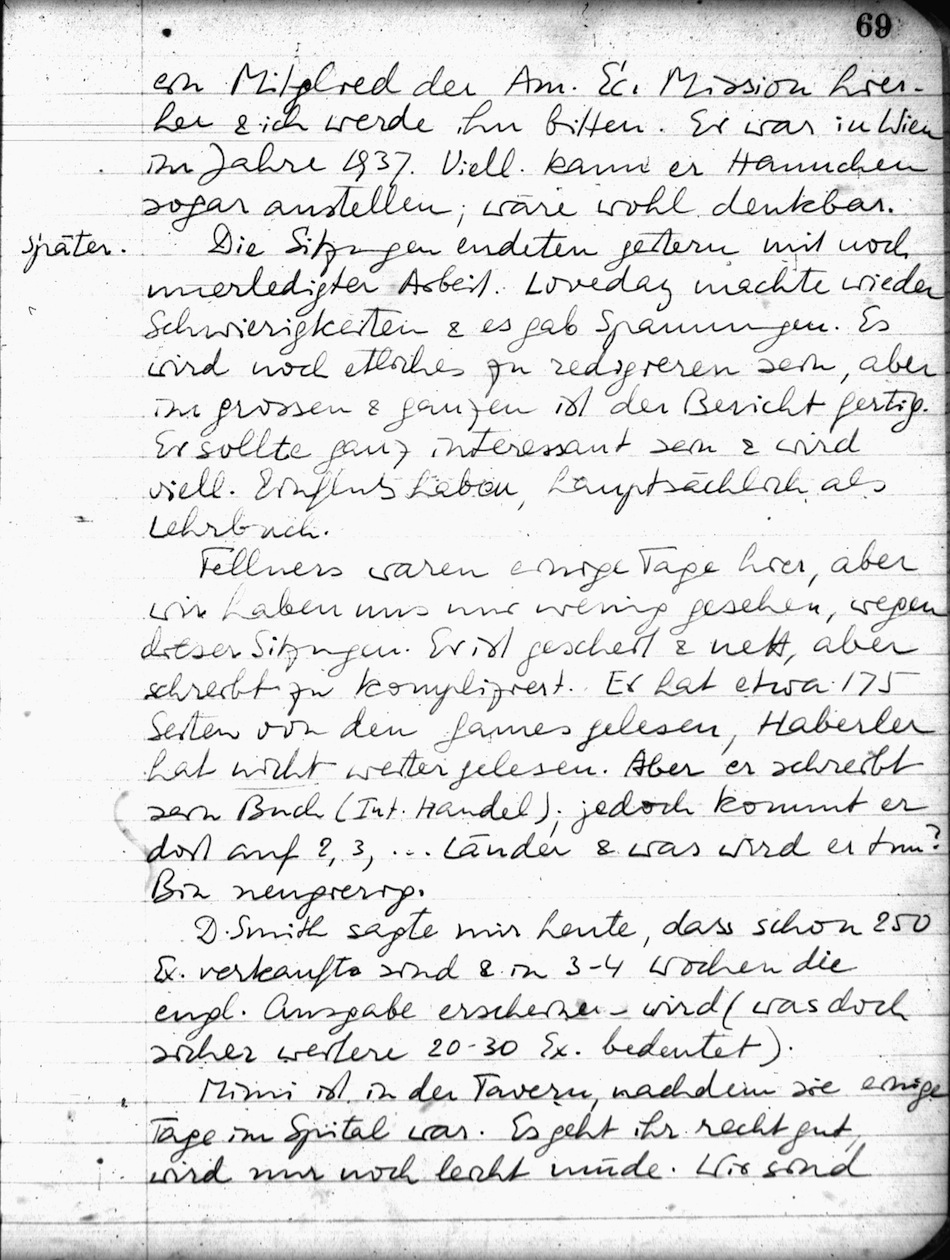 69
ein Mitglied der Am. Ec. Mission hier-
her & ich werde ihn bitten. Er war in Wien
im Jahre 1937. Viell. kann er Hannchen
sogar anstellen; wäre wohl denkbar.
Später. Die Sitzungen endeten gestern mit noch
unerledigter Arbeit. Loveday machte wieder
Schwierigkeiten & es gab Spannungen. Es
wird noch etliches zu redigieren sein, aber
im grossen & ganzen ist der Bericht fertig.
Er sollte ganz interessant sein & wird
viell. Einfluss haben, hauptsächlich als
Lehrbuch.
Fellners waren einige Tage hier, aber
wir haben uns nur wenig gesehen, wegen
dieser Sitzungen. Er ist gescheit & nett, aber
schreibt zu kompliziert. Er hat etwa 175
Seiten von den Games gelesen, Haberler
hat nicht weitergelesen. Aber er schreibt
sein Buch (Int. Handel); jedoch kommt er
dort auf 2, 3, ... Länder & was wird er tun?
Bin neugierig.
D. Smith sagte mir heute, dass schon 250
Ex. verkauft sind & in 3-4 Wochen die
engl. Ausgabe erscheinen wird (was doch
sicher weitere 20-30 Ex. bedeutet).
Mimi ist in der Tavern, nachdem sie einige
Tage im Spital war. Es geht ihr recht gut,
wird nur noch leicht müde. Wir sind